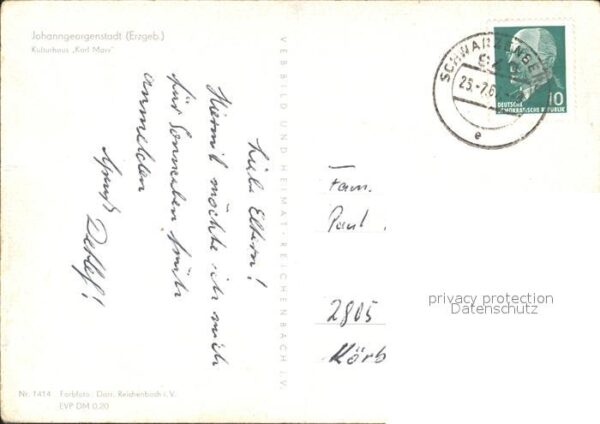 Johanngeorgenstadt (Erzgeb.)
Kulturhaus „Karl Marx"
Liebe Eltern!
Hiermit möchte ich mich
für Sonnabend früh
anmelden
Gruß Detlef!
VEB BILD UND HEIMAT · REICHENBACH i.V.
SCHWARZENBERG
Erzg
25.-7.6
e
10
DEUTSCHE
DEMOKRATISCHE REPUBLIK
Fam.
Paul
2805
Körb
privacy protection
Datenschutz
Nr. 1414 Farbfoto: Darr, Reichenbach i. V.
EVP DM 0,20